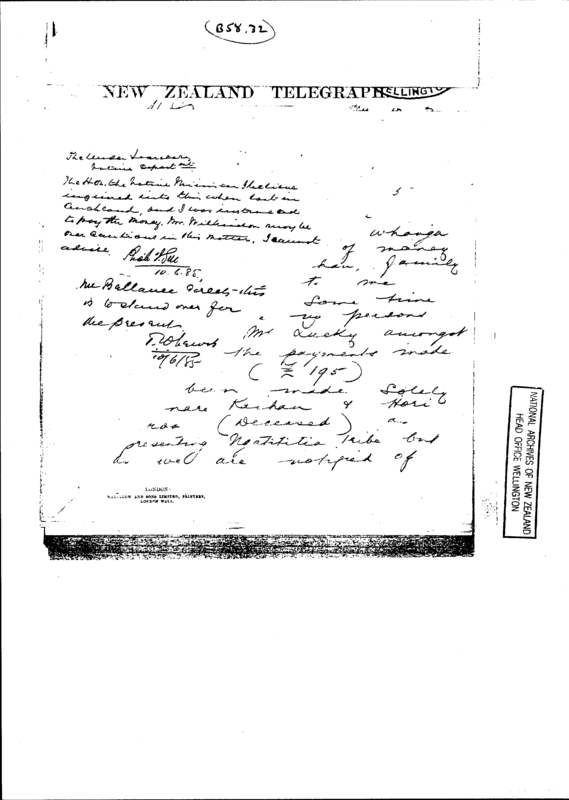 B58.32
NEW ZEALAND TELEGRAPH
The Under Secretary
Native Depart
The Hon. the Native Minister I believe
inquired into this when last in
Auckland, and I was instructed
to pay the money. Mr. Wilkinson may be
over cautious in this matter. I cannot
advise.
10.6.85
Mr Ballance directs this
is to stand over for
the present
T. W. Lewis
10/6/85
whanga
of money
hau, family
to me
Some time
up persons
Mr Lucky amongst
the payments made
(£195)
been made Solely
nare Keihau & Hori
roa (Deceased) as
presenting Ngatititia Tribe but
as well are notified of
LONDON:
AND SONS LIMITED, PRINTERS,
LONDON WALL.
NATIONAL ARCHIVES OF NEW ZEALAND
HEAD OFFICE WELLINGTON